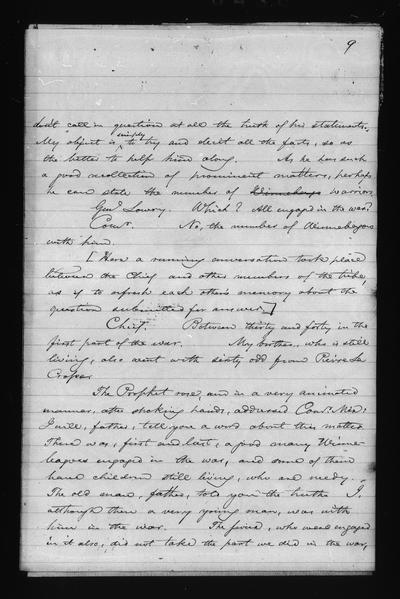 9
don't call in question at all the truth of his statements.
My object is simply to try and elicit all the facts, so as
the better to help him along. As he has such
a good recollection of prominent matters, perhaps
he can state the number of Winnebago warriors
Genl. Lowry. Which? All engaged in the war?
Comr. No, the number of Winnebagoes
with him.
[Here a running conversation took place
between the Chief and other members of the tribe,
as if to refresh each other's memory about the
question submitted for answer]
Chief. Between thirty and forty in the
first part of the war. My brother, who is still
living, also went with sixty odd from Prairie La
Crosse.
The Prophet rose, and in a very animated
manner, after shaking hands, addressed Comr.
I will, father, tell you a word about this matter
There was, first and last, a good many Winne-
bagoes engaged in the war, and some of them
have children still living, who are needy.
The old man, father, told you the truth. I,
although then a very young man, was with
him in the war. The , who were engaged
in it also, did not take the part we did in the war,